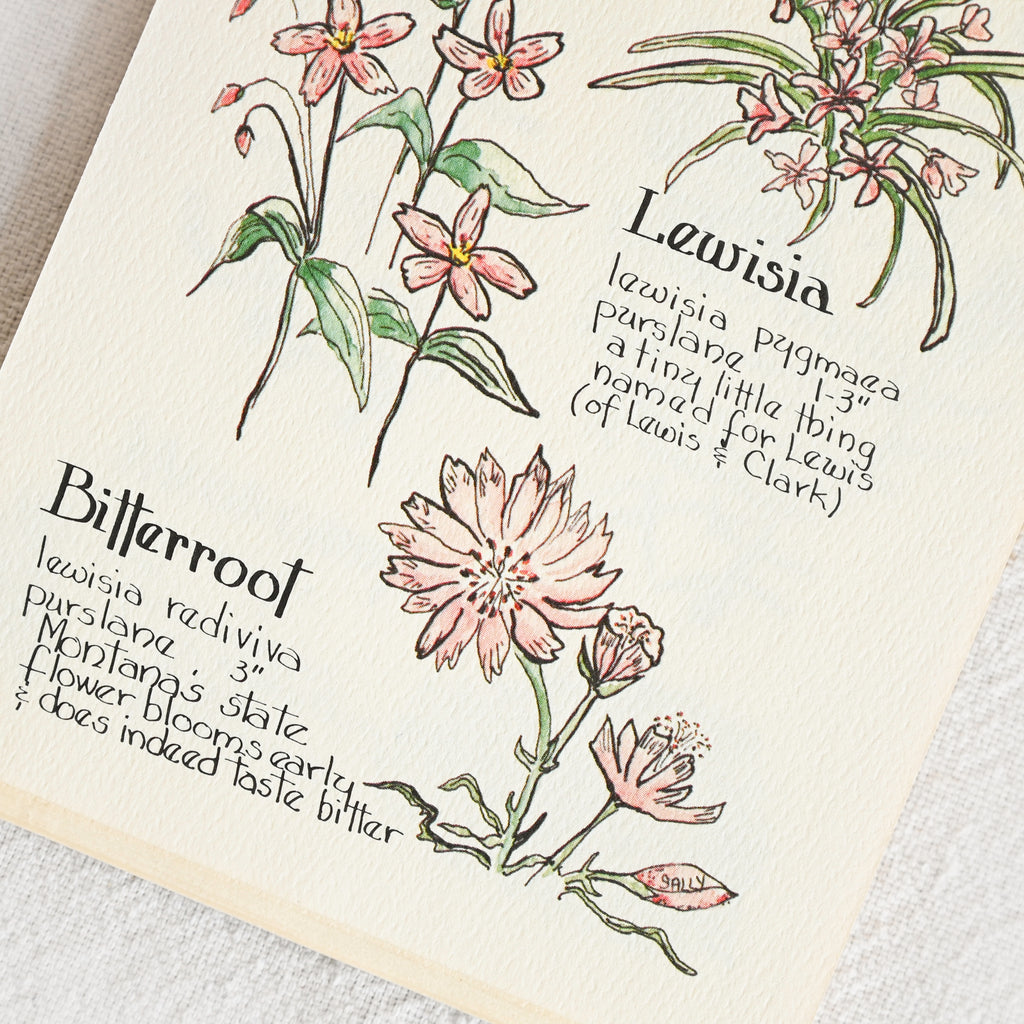 Lewisia
lewisia pygmaea
purslane 1-3"
a tiny little thing
named for Lewis
(of Lewis & Clark)
Bitterroot
lewisia rediviva
purslane 3"
Montana's state
flower blooms early
& does indeed taste bitter
SALLY